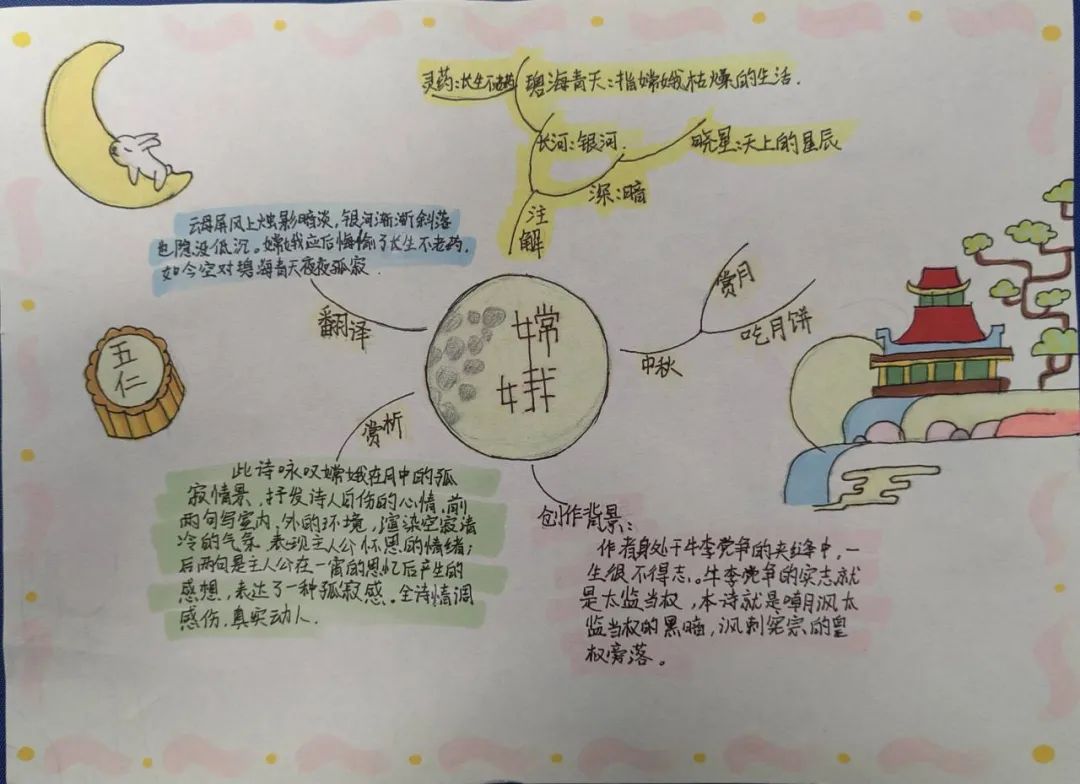 灵药:长生不老药
碧海青天:指嫦娥枯燥的生活.
长河:银河.
晓星:天上的星辰
深:暗
注解
云母屏风上烛影暗淡,银河渐渐斜落
也隐没低沉。嫦娥应后悔偷了长生不老药,
如今空对碧海青天夜夜孤寂.
翻译
嫦娥
赏月
吃月饼
中秋
五仁
赏析
此诗咏叹嫦娥在月中的孤
寂情景,抒发诗人自伤的心情.前
两句写室内、外的环境,渲染空寂清
冷的气氛 表现主人公怀思的情绪;
后两句是主人公在一宵的思忆后产生的
感想,表达了一种孤寂感.全诗情调
感伤,真实动人.
创作背景:
作者身处于牛李党争的夹缝中,一
生很不得志。牛李党争的实志就
是太监当权,本诗就是嘲讽太
监当权的黑暗,讽刺宪宗的皇
权旁落。